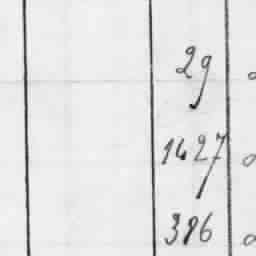 29
1427
386